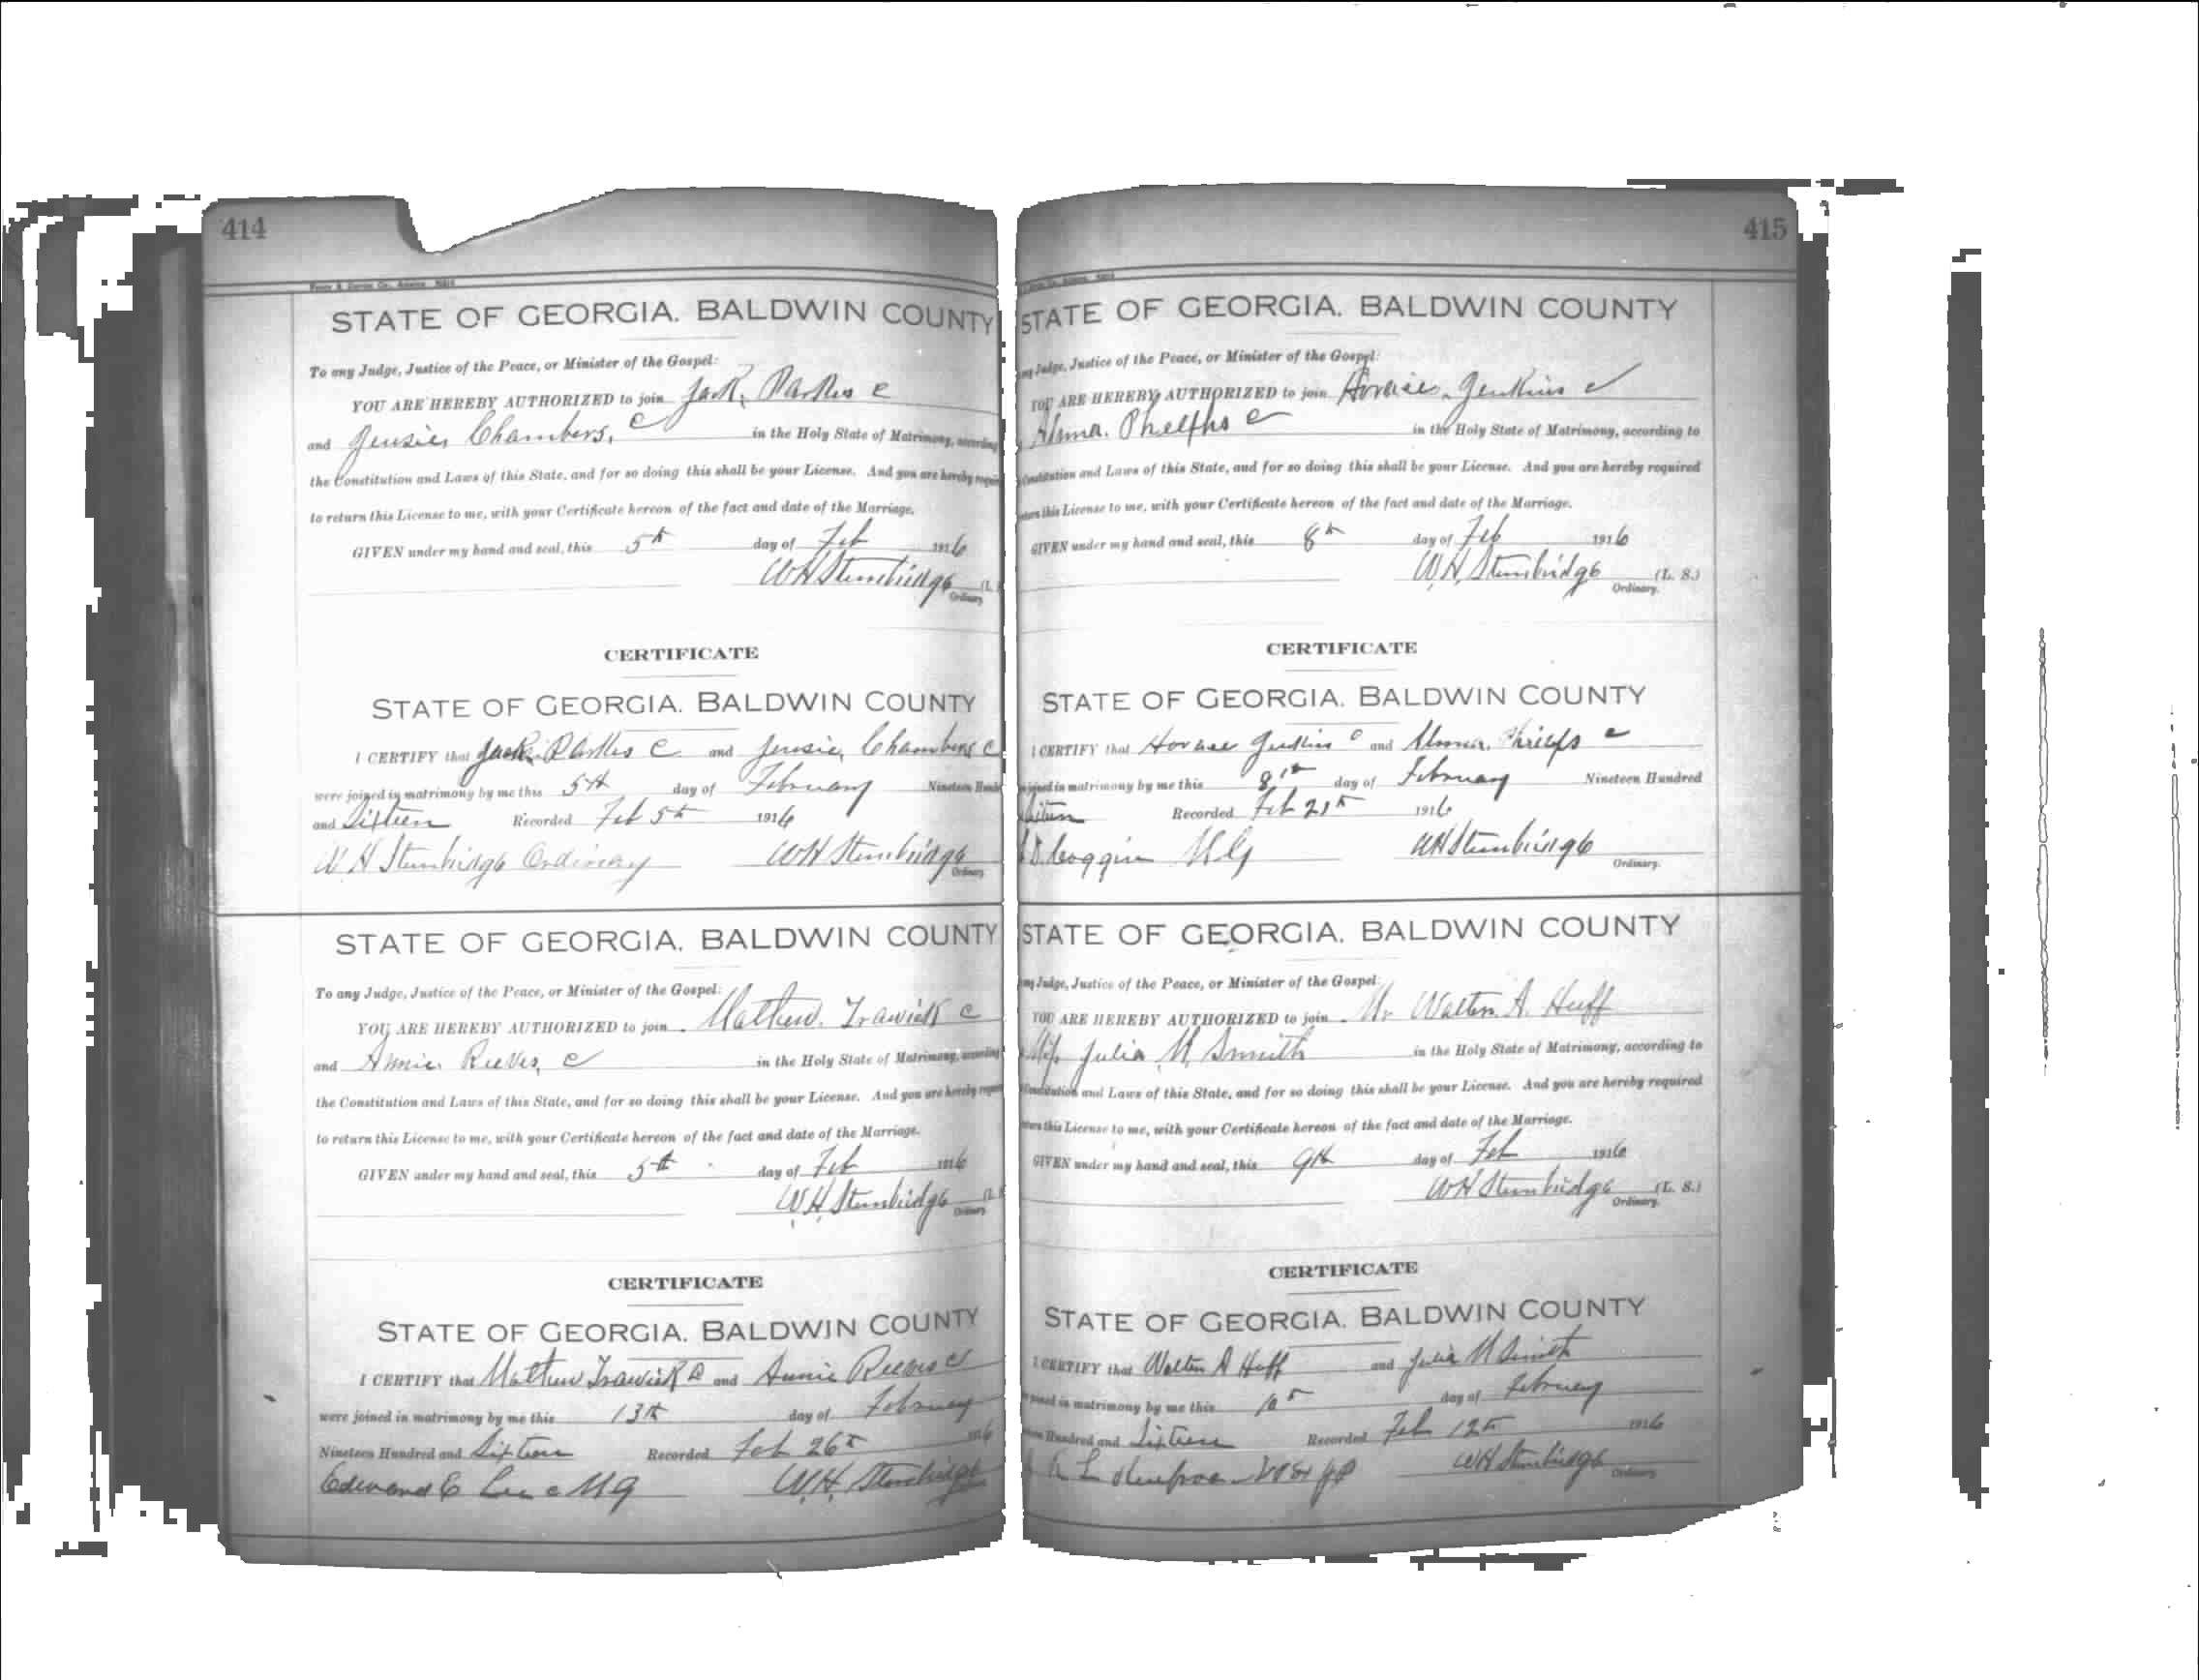 414
STATE OF GEORGIA. BALDWIN COUNTY
To any Judge, Justice of the Peace, or Minister of the Gospel:
YOU ARE HEREBY AUTHORIZED to join Jack Parkes c
and Jensie Chambers, c in the Holy State of Matrimony, according
the Constitution and Laws of this State, and for so doing this shall be your License. And you are hereby
to return this License to me, with your Certificate hereon of the fact and date of the Marriage.
GIVEN under my hand and seal, this 5th day of Feb 1916
WH Stembridge (L.
Ordinary
CERTIFICATE
STATE OF GEORGIA. BALDWIN COUNTY
I CERTIFY that Jack Parkes c and Jensie Chambers c
were joined in matrimony by me this 5th day of February Nineteen
and Sixteen Recorded Feb 5th 1916
W H Stembridge Ordinary WH Stembridge
Ordinary
STATE OF GEORGIA. BALDWIN COUNTY
To any Judge, Justice of the Peace, or Minister of the Gospel:
YOU ARE HEREBY AUTHORIZED to join Mathew Trawick c
and Annie Reeves, c in the Holy State of Matrimony, according
the Constitution and Laws of this State, and for so doing this shall be your License. And you are hereby
to return this License to me, with your Certificate hereon of the fact and date of the Marriage.
GIVEN under my hand and seal, this 5th day of Feb 1916
W.H. Stembridge
Ordinary
CERTIFICATE
STATE OF GEORGIA. BALDWIN COUNTY
I CERTIFY that Mathew Trawick c and Annie Reeves c
were joined in matrimony by me this 13th day of February
Nineteen Hundred and Sixteen Recorded Feb 26th 1916
Edmond E Lee c MG W.H. Stembridge
415
STATE OF GEORGIA. BALDWIN COUNTY
Judge, Justice of the Peace, or Minister of the Gospel:
YOU ARE HEREBY AUTHORIZED to join Horace Jenkins c
Alma Phelphs c in the Holy State of Matrimony, according to
Constitution and Laws of this State, and for so doing this shall be your License. And you are hereby required
this License to me, with your Certificate hereon of the fact and date of the Marriage.
GIVEN under my hand and seal, this 8th day of Feb 1916
W.H. Stembridge (L. S.)
Ordinary.
CERTIFICATE
STATE OF GEORGIA. BALDWIN COUNTY
I CERTIFY that Horace Jenkins c and Alma c
joined in matrimony by me this 8th day of February Nineteen Hundred
Sixteen Recorded Feb 21st 1916
Coggin MG WH Stembridge
Ordinary.
STATE OF GEORGIA. BALDWIN COUNTY
Judge, Justice of the Peace, or Minister of the Gospel:
YOU ARE HEREBY AUTHORIZED to join Mr Walter A. Huff
Miss Julia M Smith in the Holy State of Matrimony, according to
Constitution and Laws of this State, and for so doing this shall be your License. And you are hereby required
this License to me, with your Certificate hereon of the fact and date of the Marriage.
GIVEN under my hand and seal, this 9th day of Feb 1916
WH Stembridge (L. S.)
Ordinary.
CERTIFICATE
STATE OF GEORGIA. BALDWIN COUNTY
I CERTIFY that Walter A Huff and Julia M Smith
joined in matrimony by me this 10th day of February
Hundred and Sixteen Recorded Feb 12th 1916
WH Stembridge
Ordinary